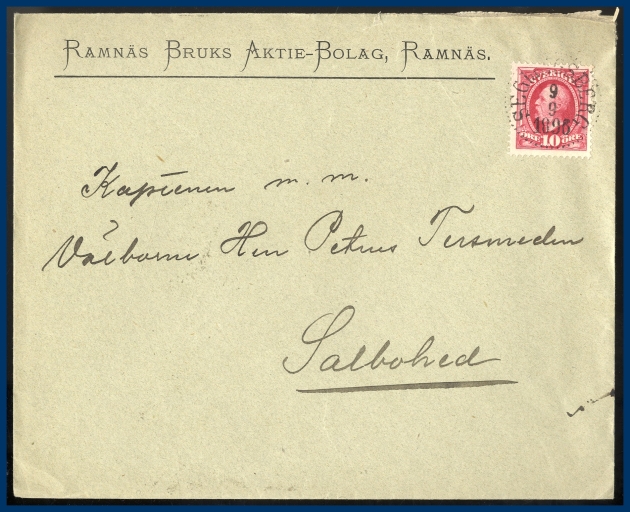 RAMNÄS BRUKS AKTIE-BOLAG, RAMNÄS.
SVERIGE
9
9
1896
10 ÖRE
Kaptenen m. m.
Välborne Herr Petrus Tersmeden
Salbohed